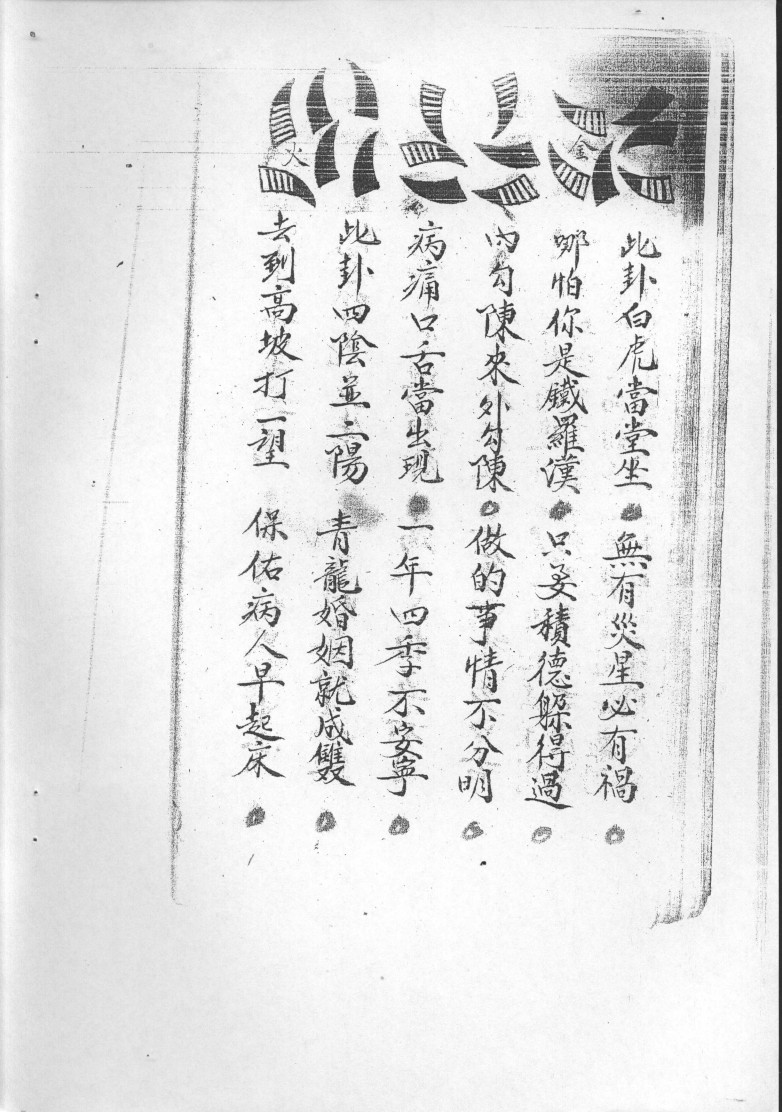 金
此卦白虎當堂坐 無有災星必有禍
哪怕你是鐵羅漢 只要積德躲得過
内勾陳來外勾陳 做的事情不分明
病痛口舌當出現 一年四季不安寧
火
此卦四陰並二陽 青龍婚姻就成雙
去到高坡打一望 保佑病人早起床